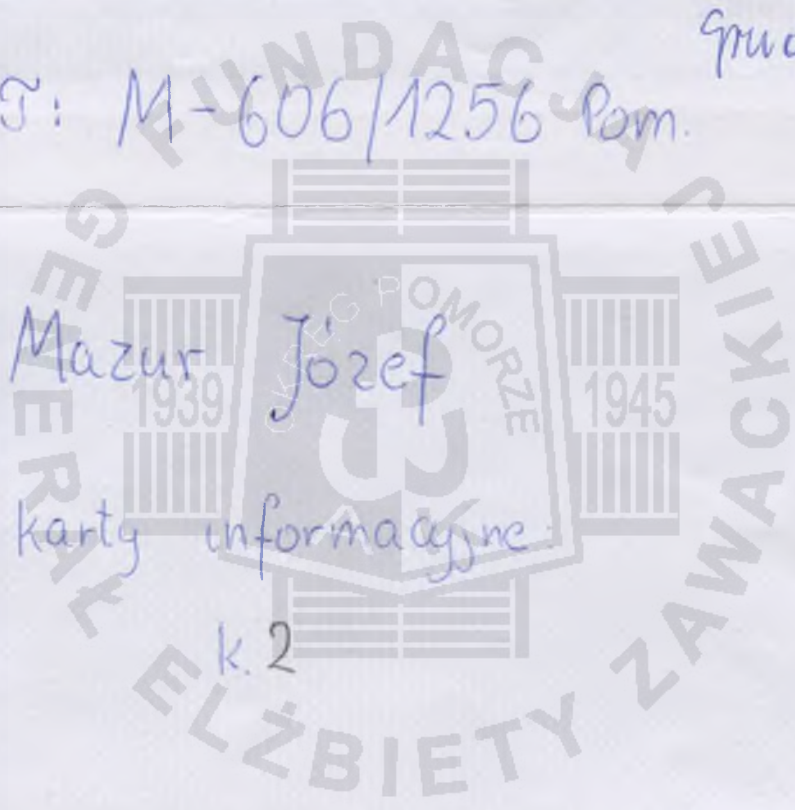 T: M-606/1256 Pom.
Mazur Józef
karty informacyjne:
k. 2
FUNDACJA GENERAŁ ELŻBIETY ZAWACKIEJ
OKRĘG POMORZE
1939 1945
AK